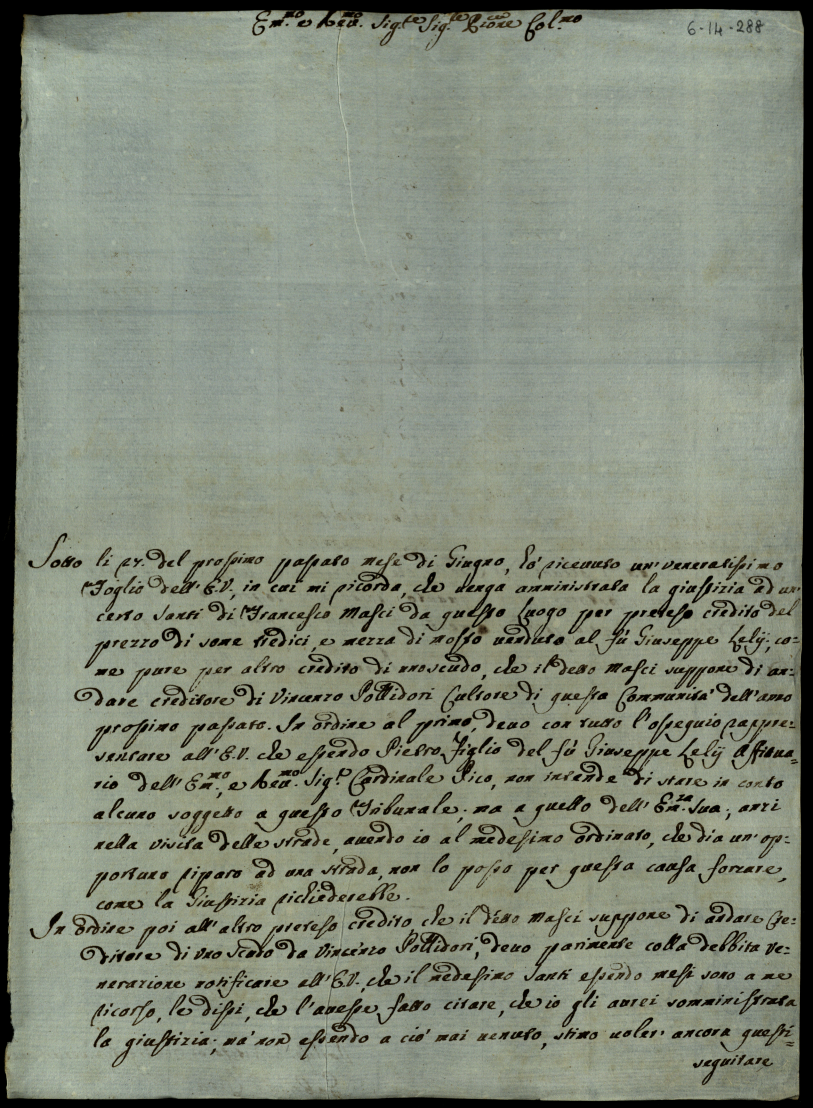 Em.mo e Reu.mo Sig.re Sig.re P̄rone Col.mo
6-14-288
Sotto li 27. del prossimo passato mese di Giugno, hò riceuuto un' veneratissimo
Foglio dell' E.V., in cui mi ricorda, che uenga amministrata la giustizia ad un
certo Santi di Francesco Masci da questo luogo per preteso credito del
prezzo di some tredici, e mezza di mosto uenduto al fù Giuseppe Lelij, co-
me pure per altro credito di uno scudo, che il detto Masci suppone di an-
dare creditore di Vincenzo Pollidori Cultore di questa Communità dell' anno
prossimo passato. In ordine al primo, deuo con tutto l'ossequio rappre-
sentare all' E.V. che essendo Pietro Figlio del fù Giuseppe Lelij Affittua-
rio dell' Em.mo, e Reu.mo Sig.r Cardinale Pico, non intende di stare in conto
alcuno soggetto a questo Tribunale, ma a quello dell' Em.za Sua; anzi
nella visita delle strade, auendo io al medesimo ordinato, che dia un' op-
portuno riparo ad una strada, non lo posso per questa causa forzare,
come la Giustizia richiederebbe.
In ordine poi all' altro preteso credito che il ditto Masci suppone di andare Cre-
ditore di uno Scudo da Vincenzo Pollidori, deuo parimente colla debbita ve-
nerazione notificare all' E.V., che il medesimo Santi essendo mesi sono a me
ricorso, le dissi, che l'auesse fatto citare, che io gli aurei somministrata
la giustizia; mà non essendo a ciò mai uenuto, stimo uoler' ancora questi
seguitare